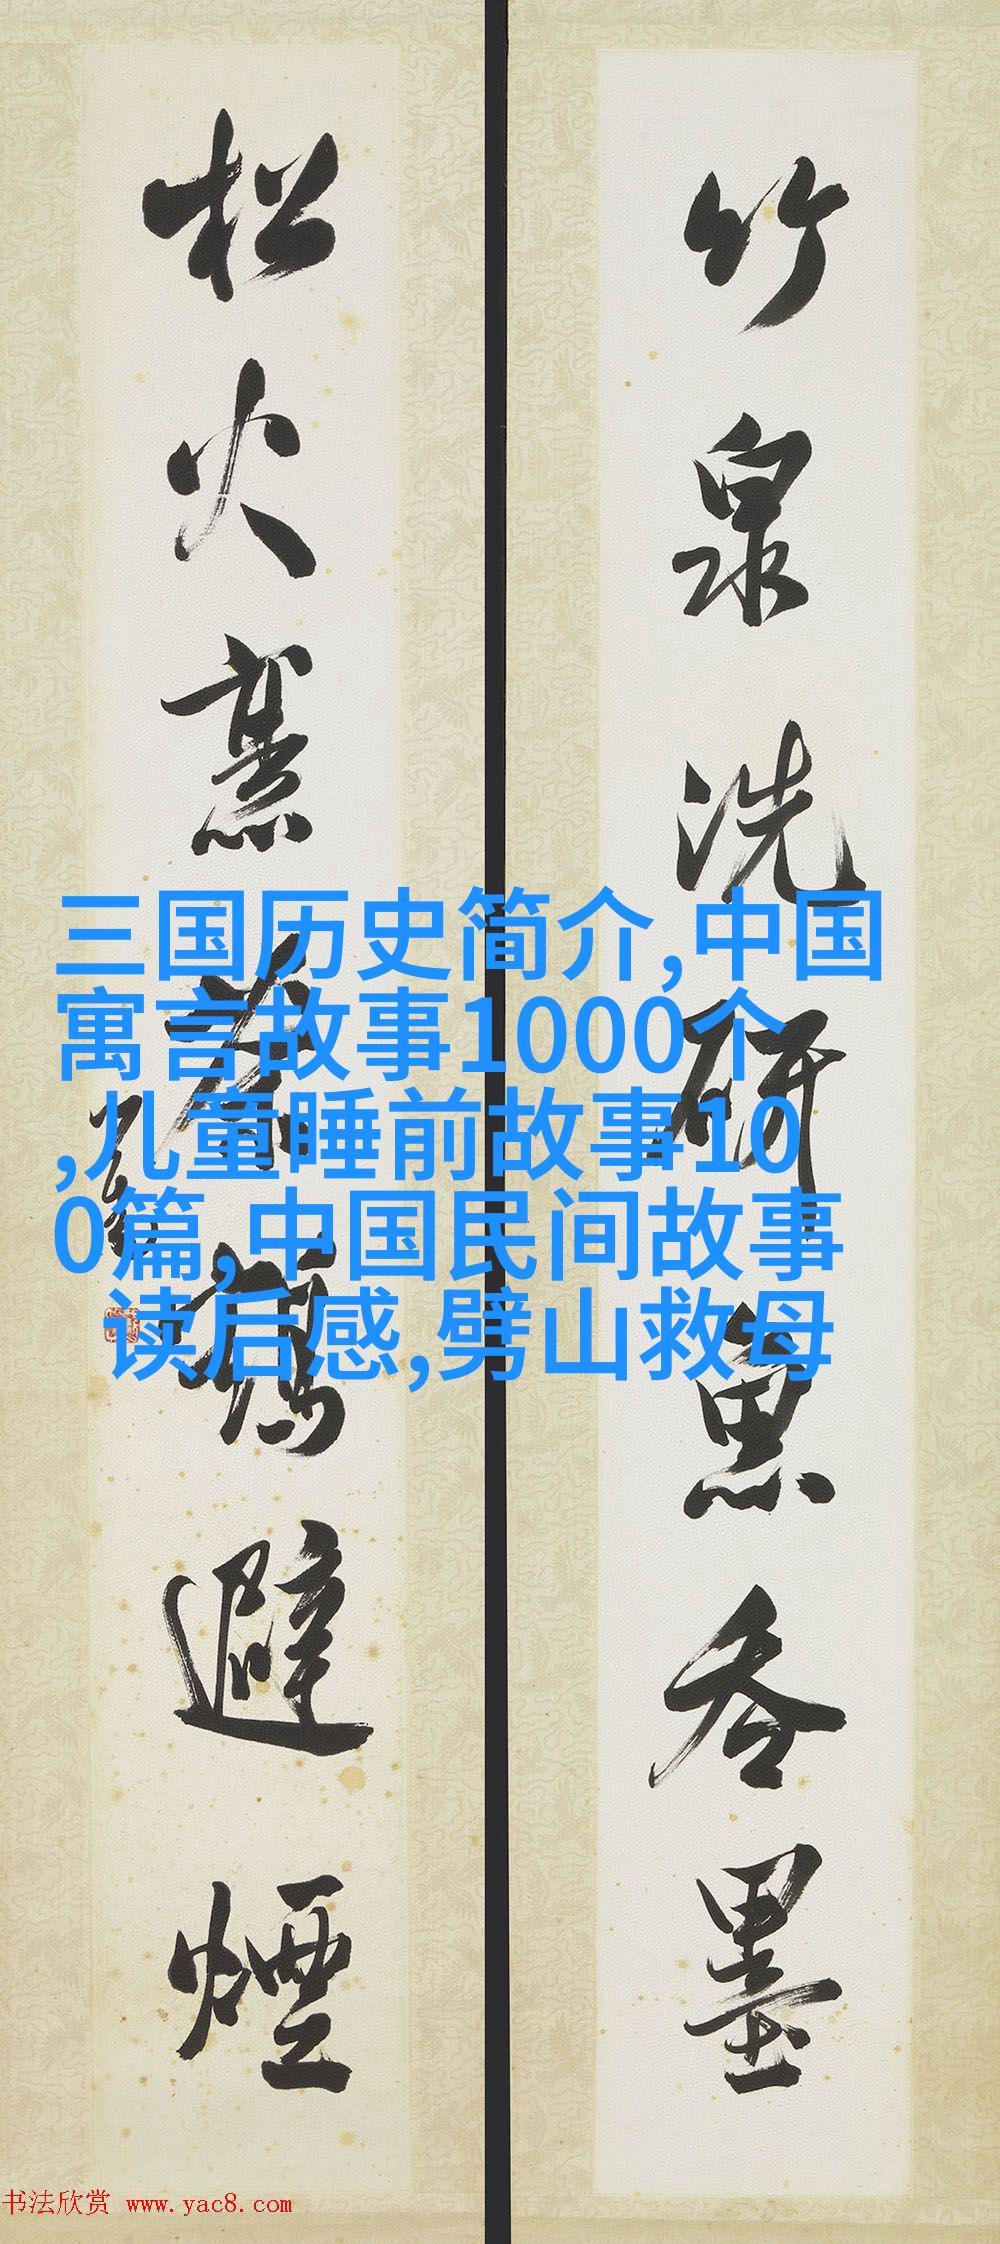 竹泉洗研魚吞墨
松火烹茶鶴避煙
三国历史简介,中国
寓言故事1000个
,儿童睡前故事10
0篇,中国民间故事
读后感,劈山救母
书法欣赏 www.yac8.com